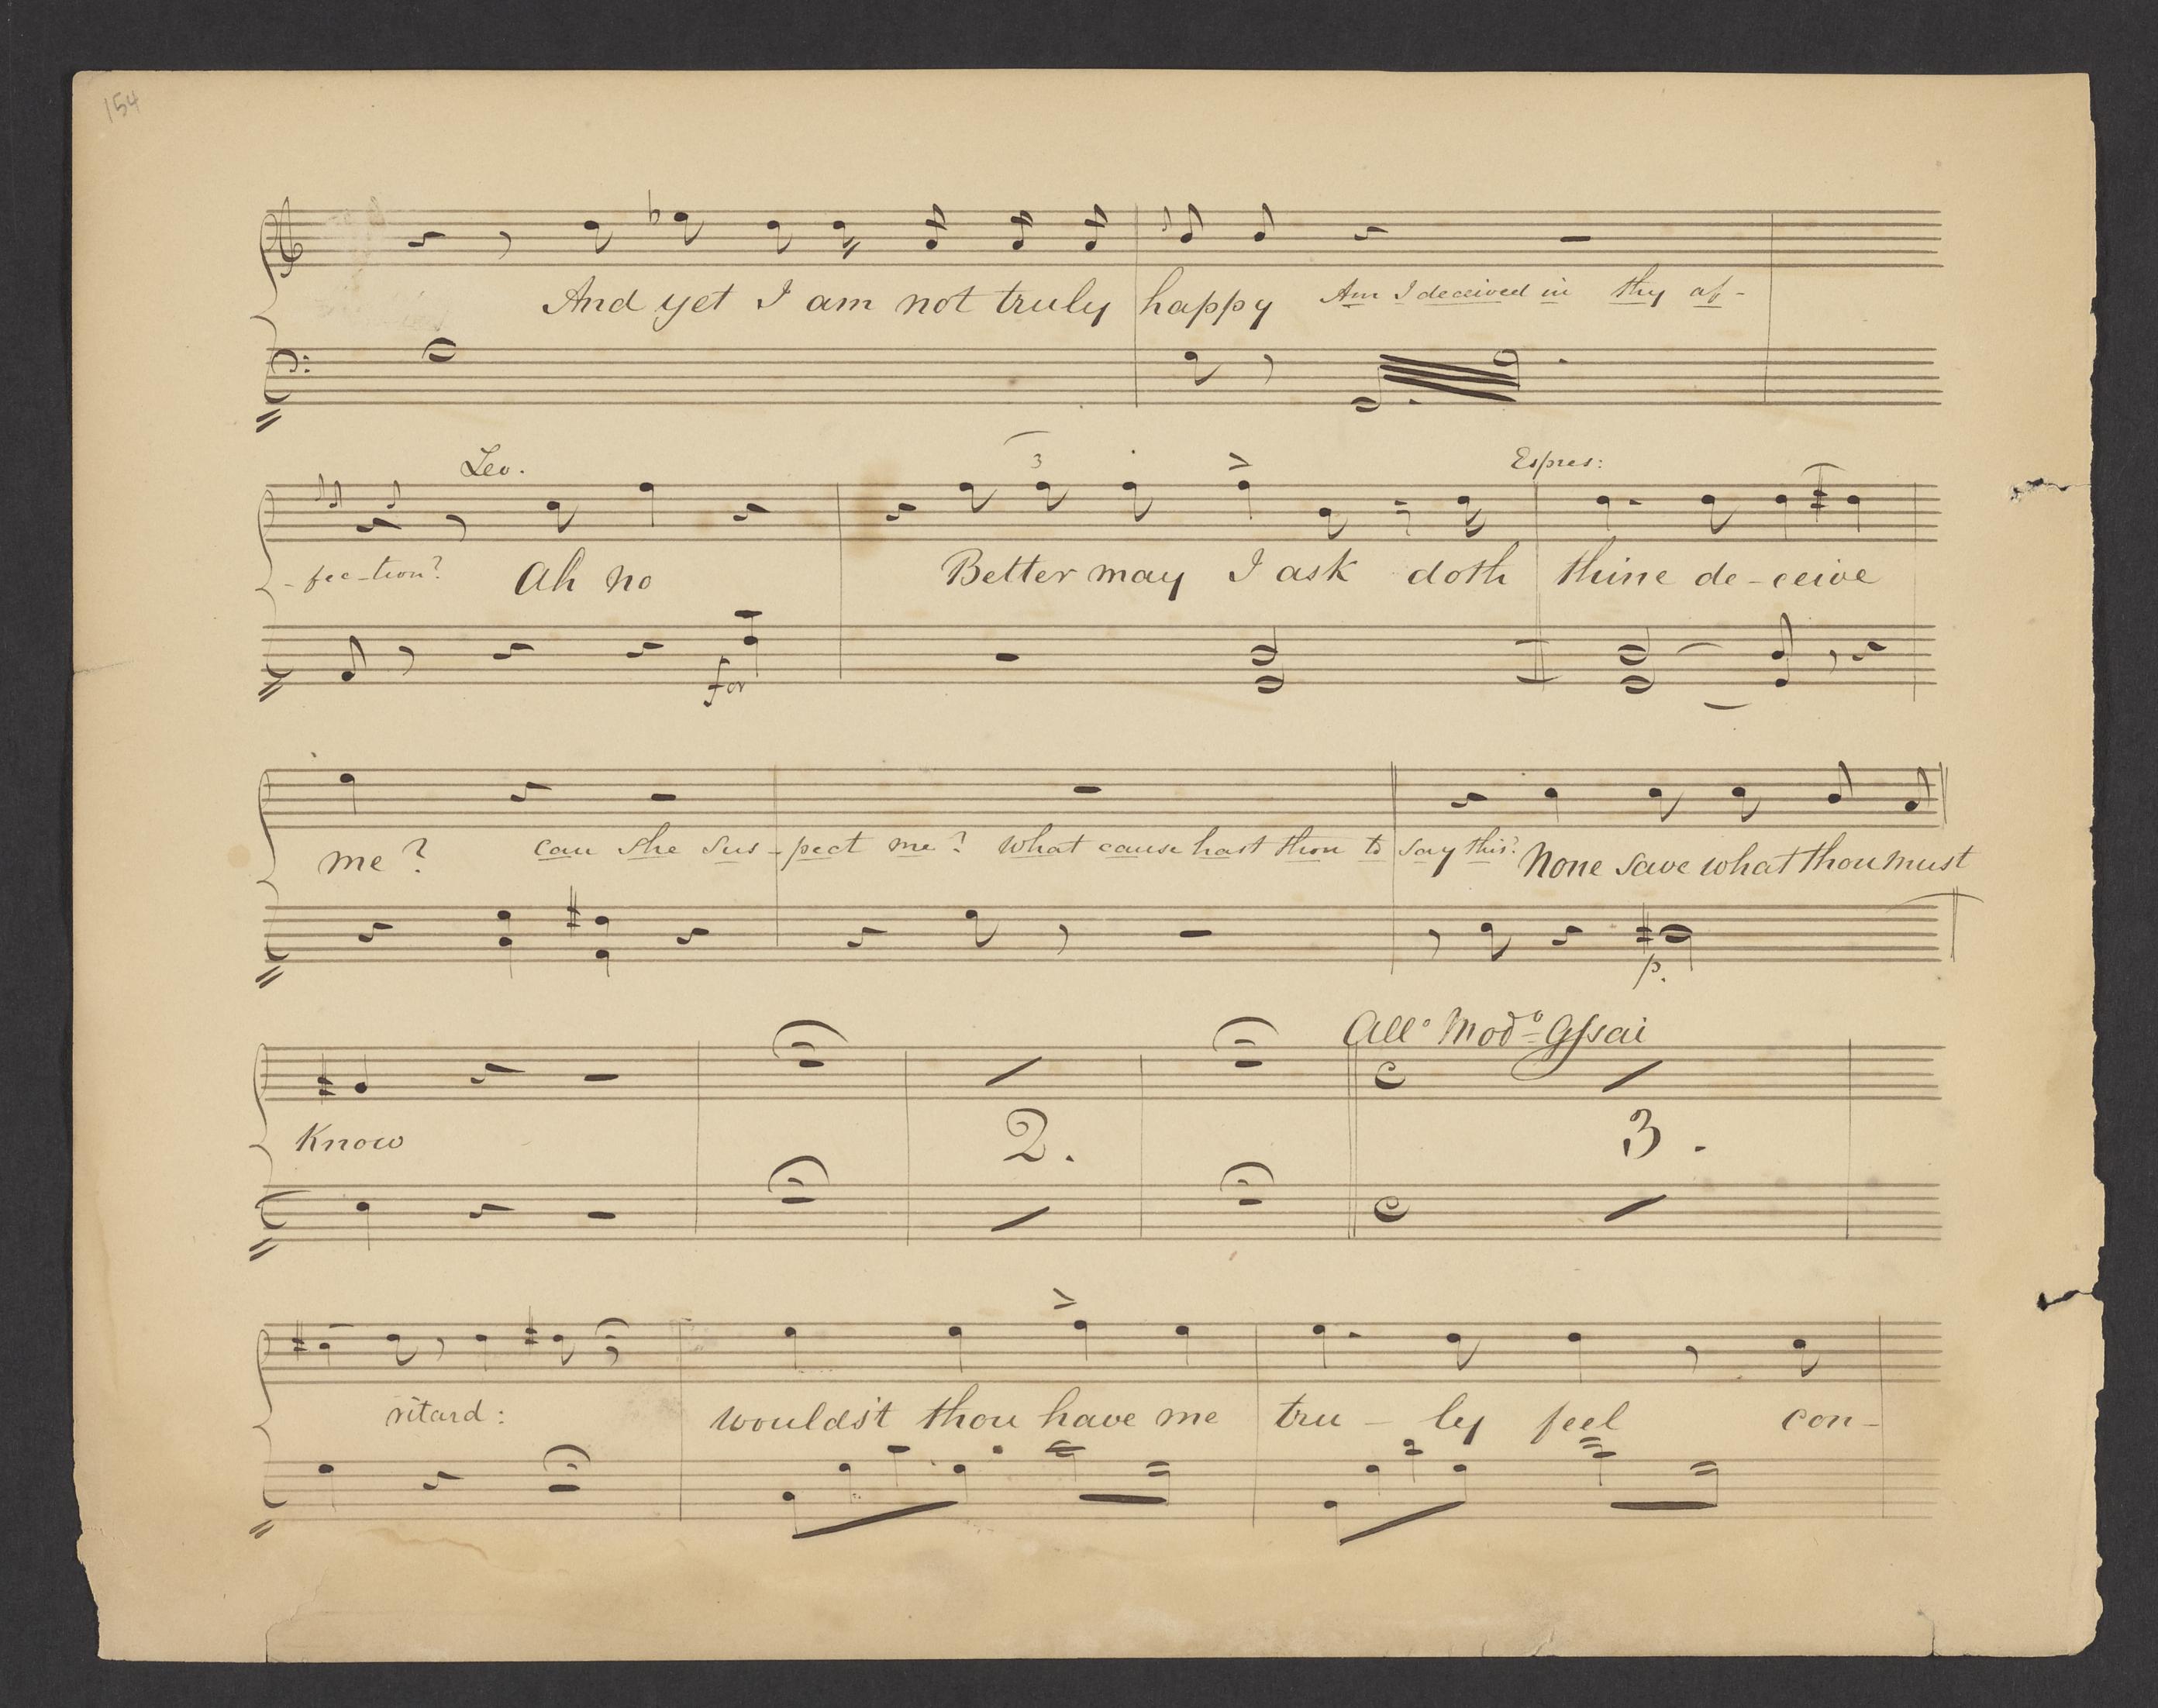 154
And yet I am not truly happy Am I deceived in thy af-
Leo.
3
Espres:
-fec-tion? Ah no Better may I ask doth thine de-ceive
for
me? can she sus-pect me? what cause hast thou to say this? None save what thou must
p.
All° Mod° Assai
Know
2. 3.
ritard: wouldst thou have me tru-ly feel con-